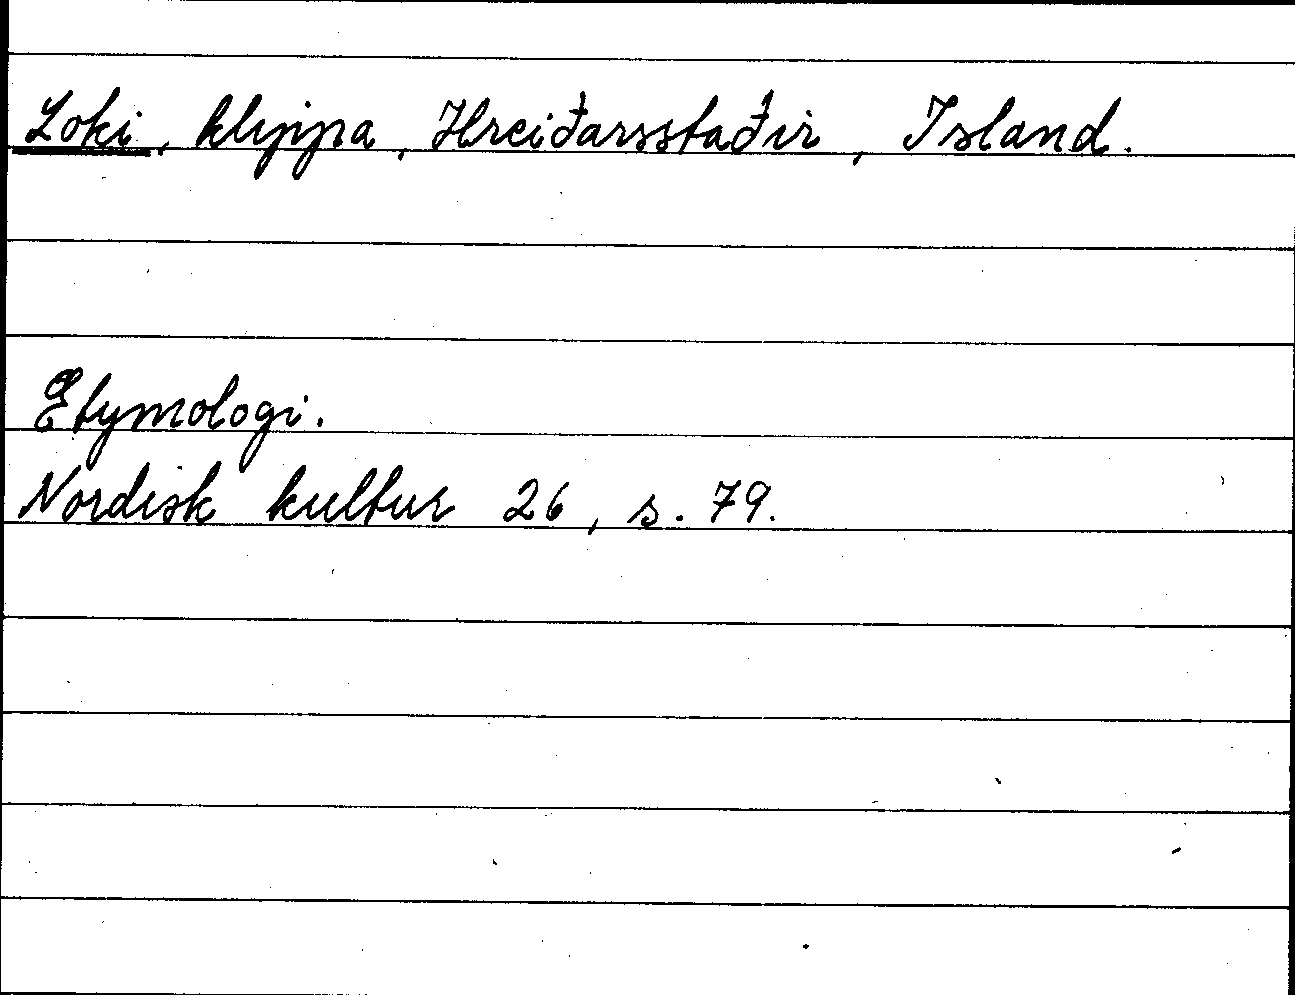 Loki, klippa, Hreiðarsstaðir, Island.
Etymologi.
Nordisk kultur 26, s. 79.